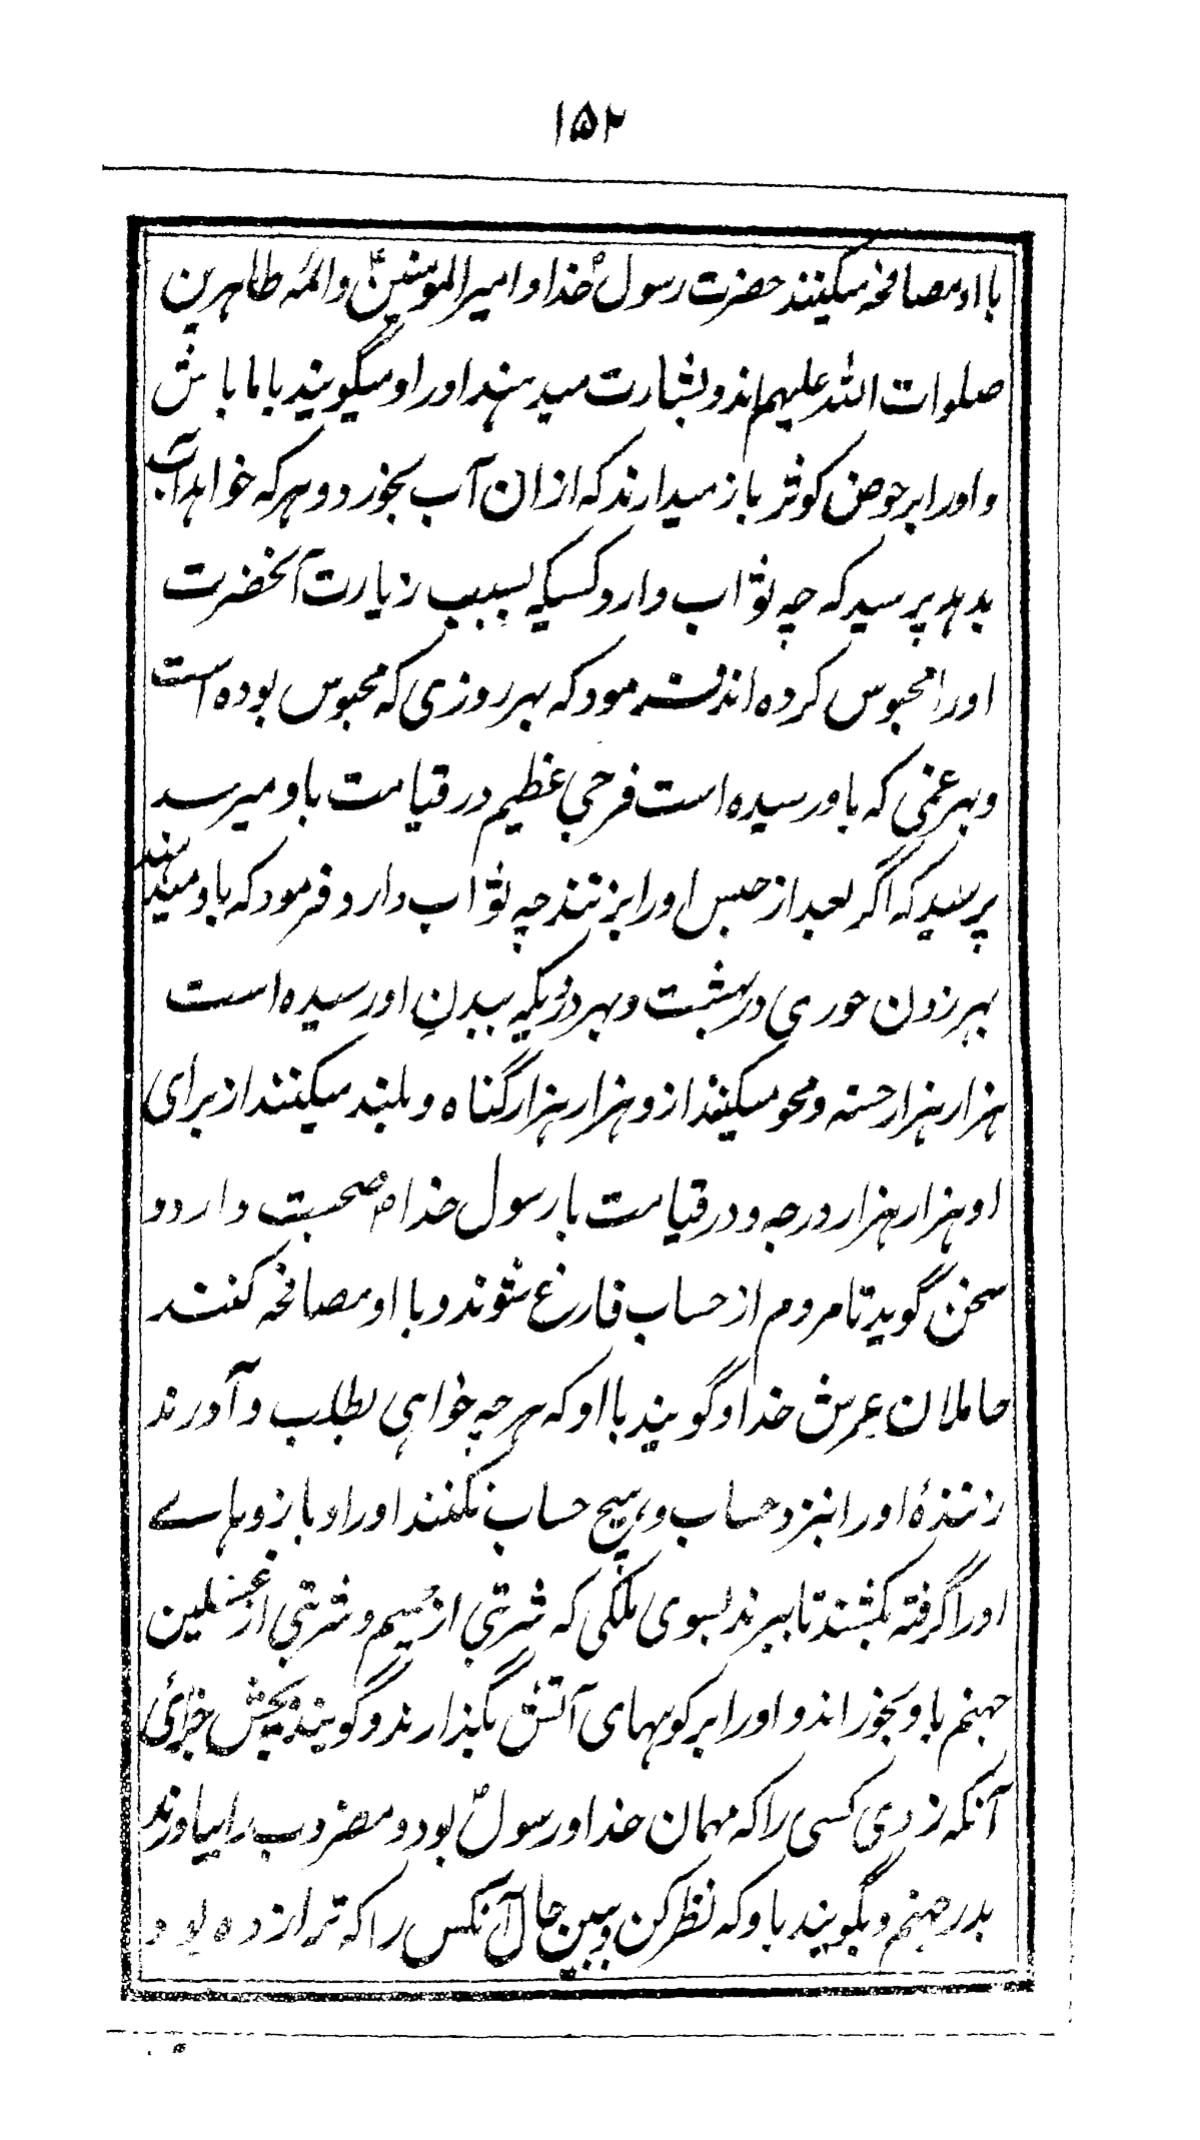 ۱۵۲
با او مصافحه میکنند حضرت رسول خدا و امیرالمومنین و ائمه طاهرین
صلوات الله علیهم اند و بشارت میدهند او را و میگویند با ما باش
و او را بر حوض کوثر باز میدارند که از ان آب بخورد و هر که خواهد آب
بدهد پرسید که چه ثواب دارد کسیکه بسبب زیارت آنحضرت
او را محبوس کرده اند فرمود که بهر روزی که محبوس بوده است
و بهر غمی که باو رسیده است فرحی عظیم در قیامت باو میرسد
پرسید که اگر بعد از حبس او را بزنند چه ثواب دارد فرمود که باو میدهند
بهر زدن حوری در بهشت و بهر دردیکه ببدنِ او رسیده است
هزار هزار حسنه و محو میکنند ازو هزار هزار گناه و بلند میکنند از برای
او هزار هزار درجه و در قیامت با رسول خدا ص صحبت دارد و
سخن گوید تا مردم از حساب فارغ شوند و با او مصافحه کنند
حاملان عرش خدا و گویند با او که هر چه خواهی بطلب و آورند
زنندهٔ او را بنزد حساب و هیچ حساب نکنند او را و بازوهاے
او را گرفته بکشند تا ببرند بسوی ملکی که شربتی از حمیم و شربتی از غسلین
جهنم باو بخورانند و او را بر کوههای آتش بگذارند و گویند بچش جزائی
آنکه زدی کسی را که مهمان خدا و رسول بود و مضروب را بیاورند
بدر جهنم و بگویند باو که نظر کن و ببین حال آنکس را که ترا زده بود